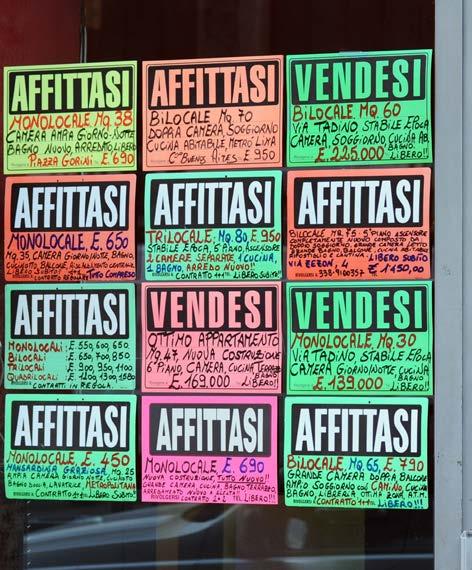 AFFITTASI
MONOLOCALE MQ. 38
CAMERA AMPIA GIORNO-NOTTE
BAGNO NUOVO, ARREDATO LIBERO
PIAZZA GORINI E. 690
AFFITTASI
BILOCALE MQ. 70
DOPPIA CAMERA, SOGGIORNO
CUCINA ABITABILE, METRO' LIMA
C.SO BUENOS AIRES E. 950
VENDESI
BILOCALE, MQ. 60
VIA TADINO, STABILE EPOCA
CAMERA SOGGIORNO CUCINA AB.
BAGNO
E. 225.000 LIBERO!!
AFFITTASI
MONOLOCALE, E. 650
MQ. 35, CAMERA GIORNO/NOTTE, BAGNO,
CUCINOTTO BALCONE
LIBERO SUBITO TUTTO COMPRESO
CONTRATTO
AFFITTASI
TRILOCALE MQ. 80, E. 950
STABILE EPOCA, 5° PIANO, ASCENSORE
2 CAMERE SEPARATE, 1 CUCINA,
1 BAGNO, ARREDO NUOVO!!
CONTRATTO 4+4 LIBERO SUBITO!!
AFFITTASI
BILOCALE MQ. 75 - 5° PIANO ASCENSORE
COMPLETAMENTE NUOVO COMPOSTO DA
DOPPIO SOGGIORNO, GRANDE CAMERA LETTO
RIPOSTIGLIO E CANTINA, LIBERO SUBITO
VIA ZEZON, 4 E. 1450,00
AFFITTASI
MONOLOCALI: E. 550, 600, 650
BILOCALI : E. 650, 700, 850
TRILOCALI : E. 900, 950, 1100
QUADRILOCALI E. 1200, 1300, 1580
CONTRATTI IN REGOLA.
VENDESI
OTTIMO APPARTAMENTO
MQ. 47, NUOVA COSTRUZIONE
6° PIANO CAMERA, CUCINA, TERRAZZO
BAGNO
E. 169.000 LIBERO!!
VENDESI
MONOLOCALE, MQ. 30
VIA TADINO, STABILE EPOCA
CAMERA GIORNO/NOTTE CUCINA
BAGNO
E. 139.000 LIBERO!!
AFFITTASI
MONOLOCALE, E. 450
MANSARDINA GRAZIOSA MQ. 25
AMPIA CAMERA GIORNO NOTTE, CUCINOTTO
BAGNO DOCCIA, LAVATRICE, METROPOLITANA
CONTRATTO 4+4 LIBERO SUBITO!!
AFFITTASI
MONOLOCALE, E. 690
NUOVA COSTRUZIONE, TUTTO NUOVO!!
GRANDE CAMERA CUCINA, BAGNO TERRAZZO,
ARREDAMENTO NUOVO A SCELTA!
RIVOLGERSI A: CONTRATTO LIBERO!!!
AFFITTASI
BILOCALE, MQ. 65, E. 790
GRANDE CAMERA DOPPIA, BALCONE
AMPIO SOGGIORNO CON CAMINO, CUCINA
BAGNO, LIBRERIA, OTTIMA ZONA, A.T.M.
RIVOLGERSI A: CONTRATTO 4+4 LIBERO!!!